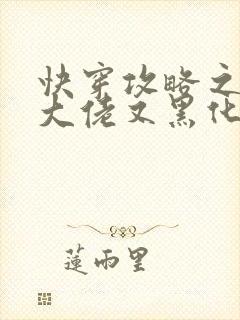 快穿攻略之
大佬又黑化
蓮雨里